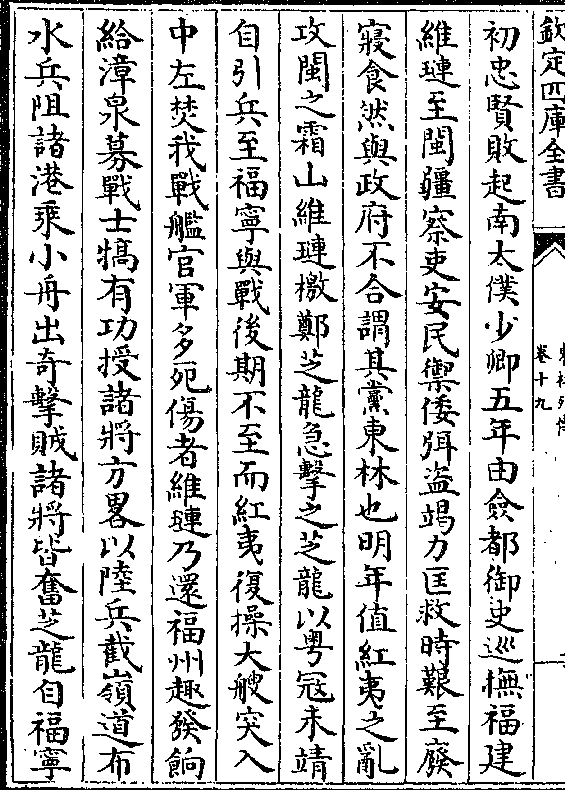 欽定四庫全書
卷十九
初忠賢敗起南太僕少卿五年由僉都御史巡撫福建
維璉至閩疆察吏安民禦倭弭盜竭力匡救時艱至廢
寢食然與政府不合謂其黨東林也明年值紅夷之亂
攻閩之霜山維璉檄鄭芝龍急擊之芝龍以粤冠未靖
自引兵至福寧與戰後期不至而紅夷復操大艘突入
中左焚我戰艦官軍多死傷者維璉乃還福州趣發餉
給漳泉募戰士犒有功授諸將方畧以陸兵截嶺道布
水兵阻諸港乘小舟出奇擊賊諸將皆奮芝龍自福寧